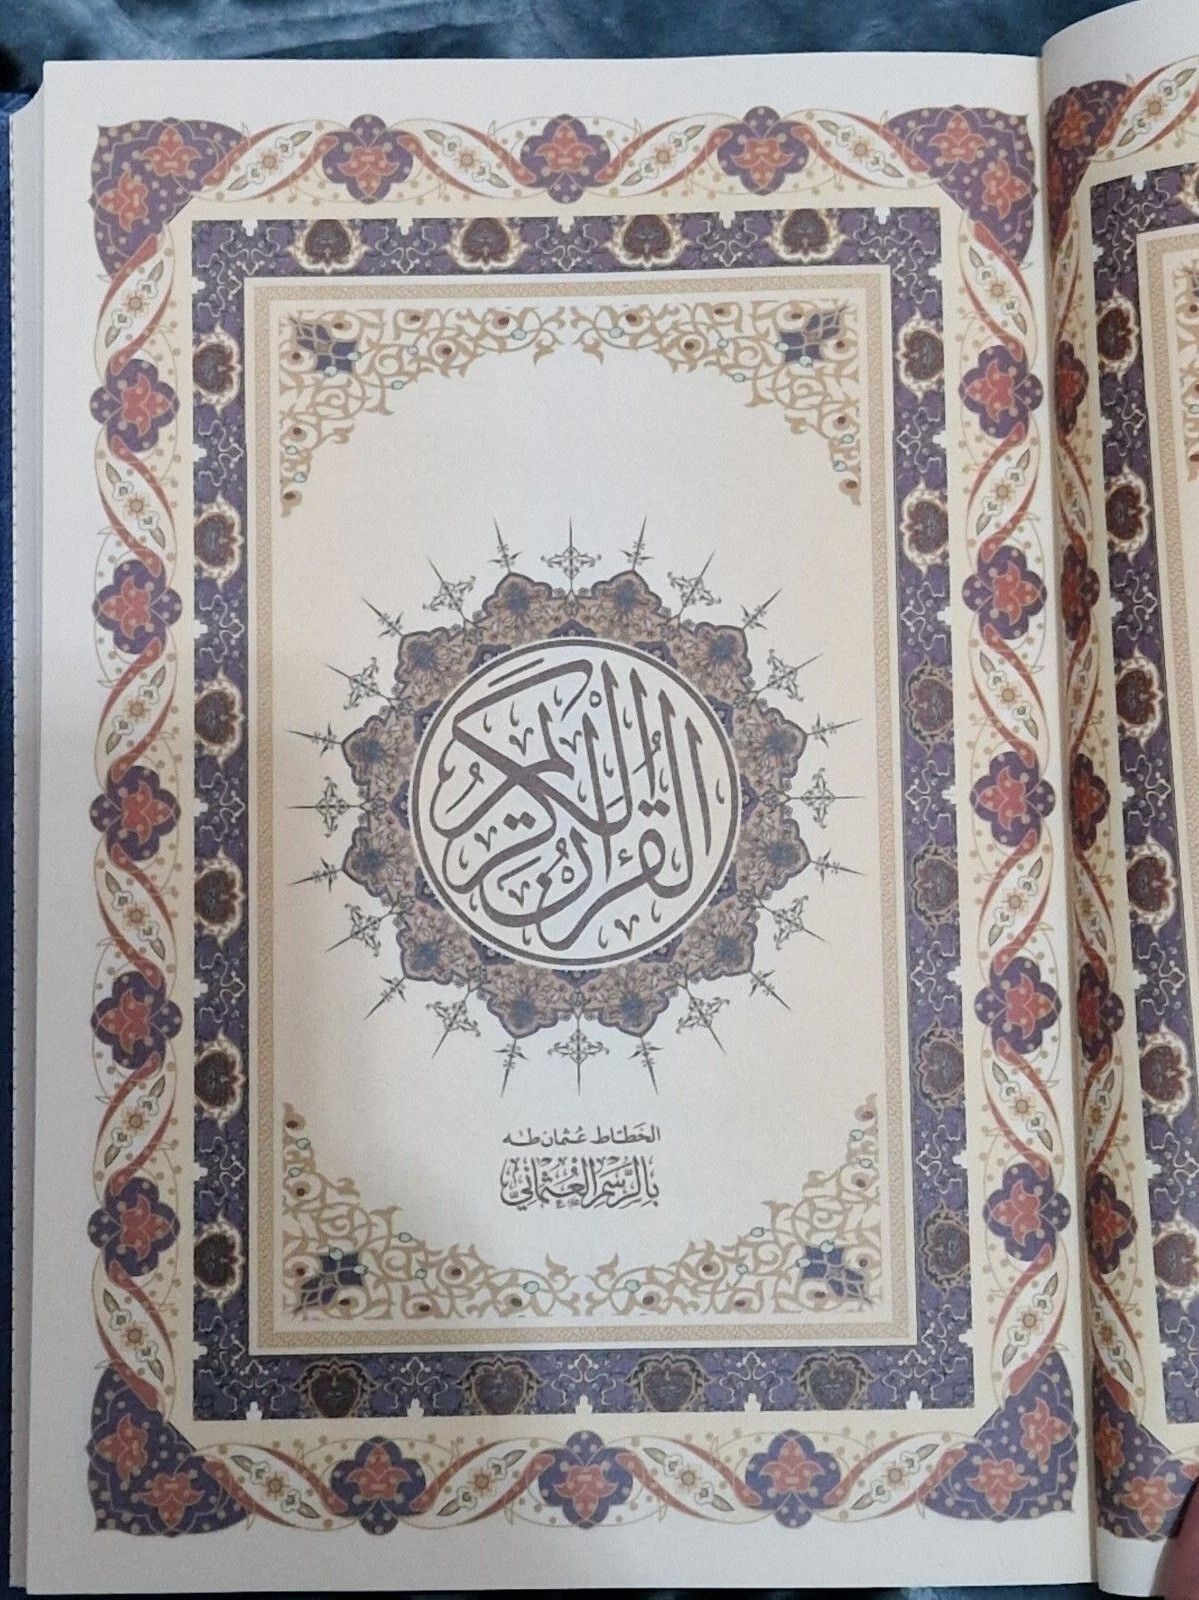 القُرْآن الكَرِيم
الخطاط عثمان طه
بِالرَّسْمِ العُثْمَانِيِّ